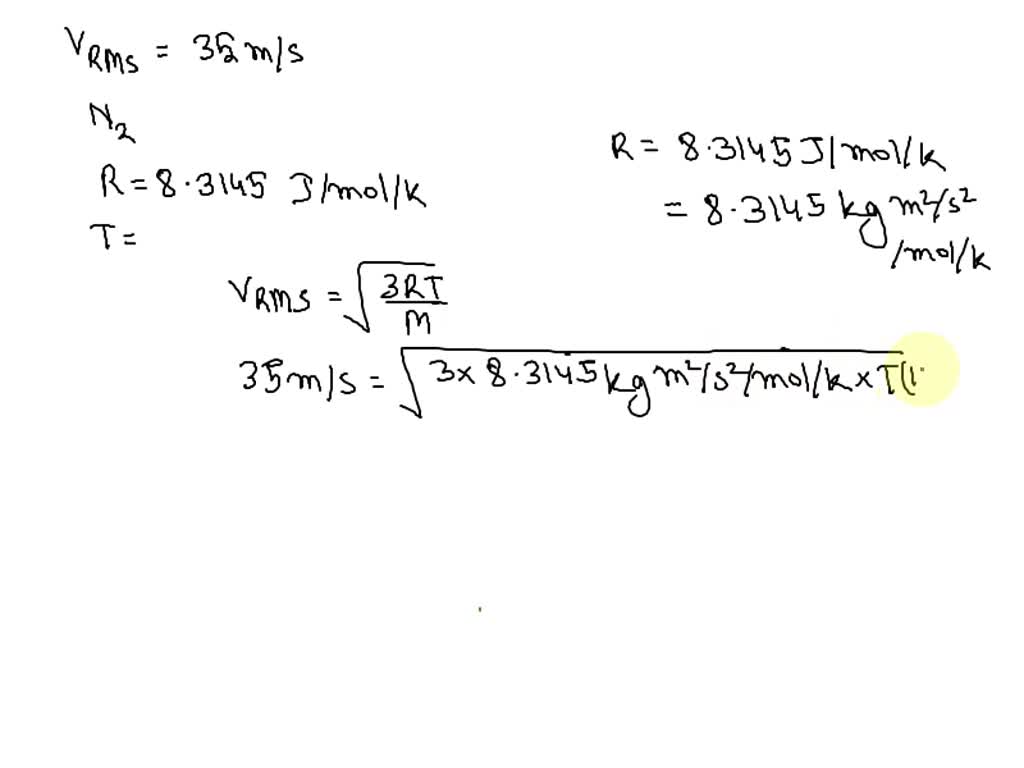 VRMS = 35 m/s
N2
R = 8.3145 J/mol/k
T =
R = 8.3145 J/mol/k
= 8.3145 kg m²/s²
/mol/k
VRMS = √3RT/M
35 m/s = √3 x 8.3145 kg m²/s²/mol/k x T(